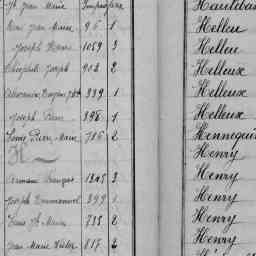 Jn Jean Marie Hautebas
Jean Marie 96 1 Helleu
Joseph Marie 1059 3 Helleu
Théophile Joseph 904 2 Helleux
Alexandre Eugène 339 1 Helleux
Joseph Jean 398 1 Helleux
Louis Pierre Marie 716 2 Hennequin
H Henry
Armand François 1345 3 Henry
Joseph Emmanuel 399 1 Henry
Louis Jh Marie 735 2 Henry
Jean Marie Victor 817 2 Henry